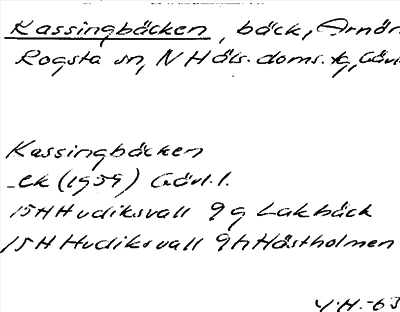 Kassingbäcken, bäck, Arnön
Rogsta sn, N Häls. doms. tg, Gävl.
Kassingbäcken
_ck (1939) Gävl. l.
15H Hudiksvall 9g Lakbäck
15H Hudiksvall 9h Hästholmen
Y.H.-63